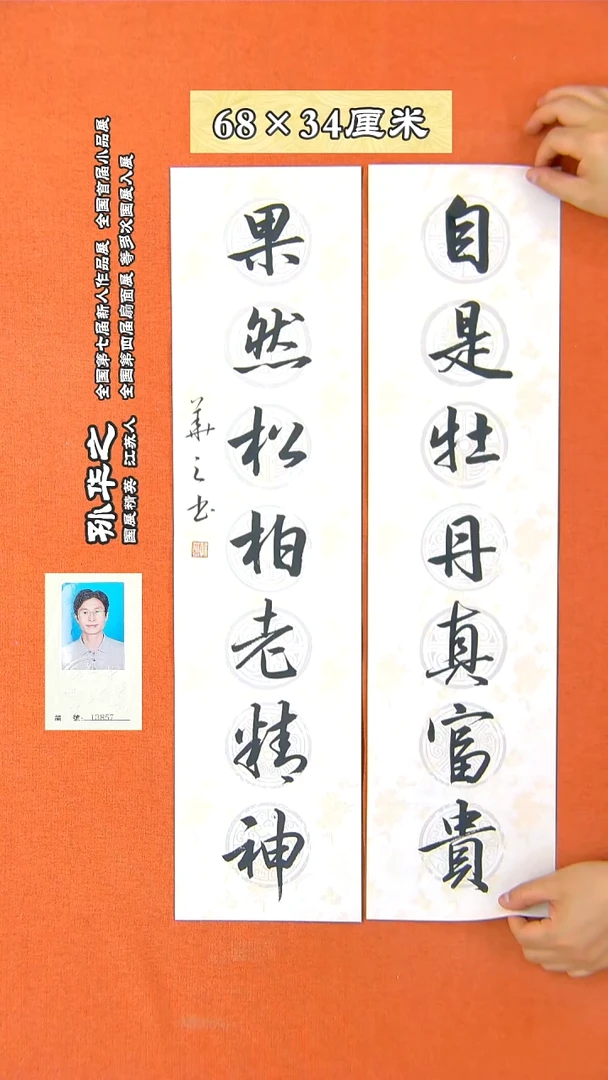 68×34厘米
自是牡丹真富贵
果然松柏老精神
華之书
孙华之
国展精英 江苏人
全国第七届新人作品展 全国首届小品展
全国第四届扇面展 等多次国展入展
编 號: 13857